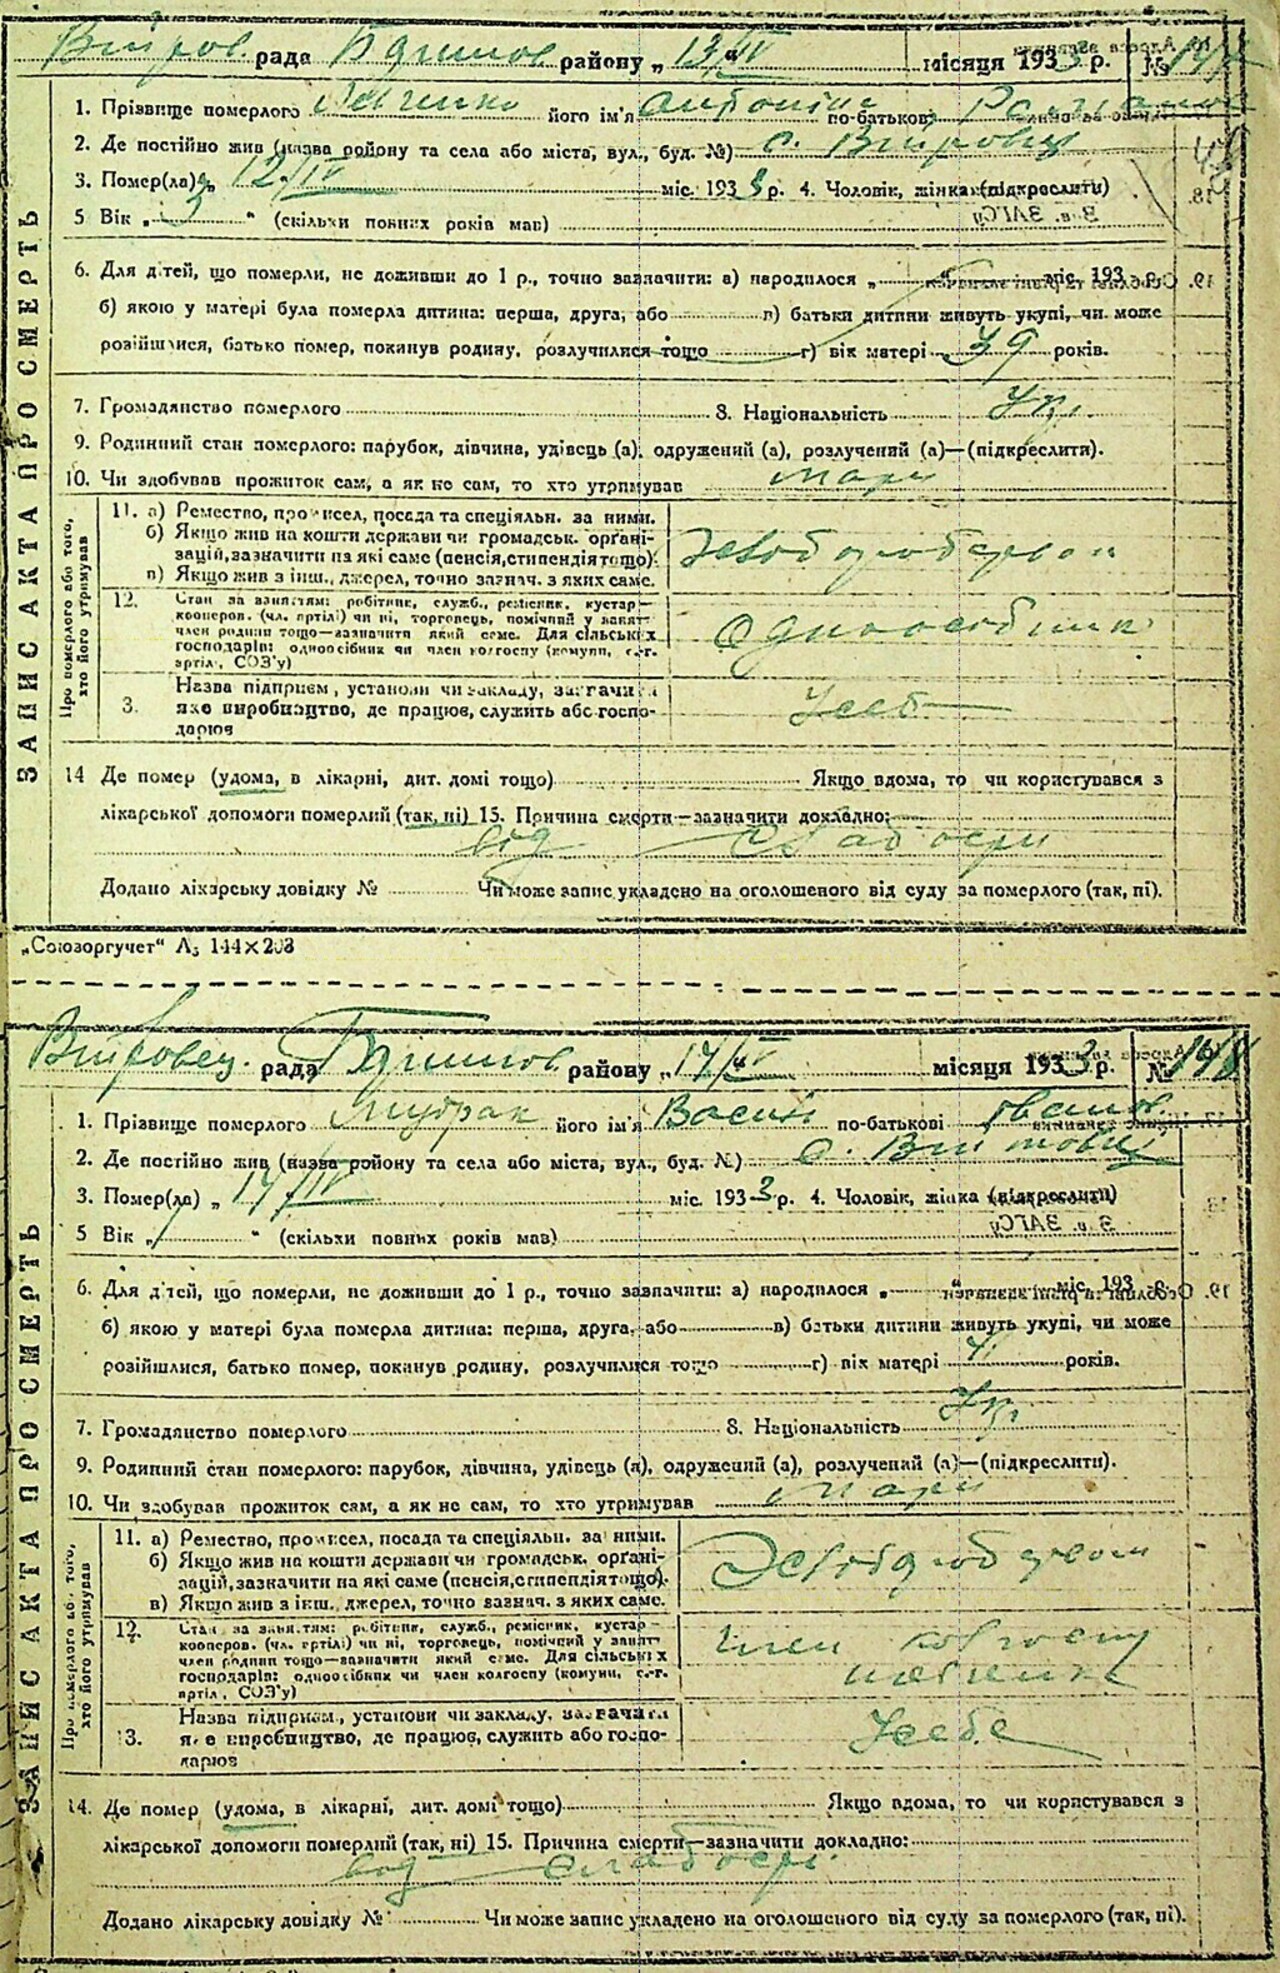 рада район у „ 13/IV " місяця 1933 р. №
1. Прізвище померлого його ім'я Антоніна по-батькові
2. Де постійно жив (назва району та села або міста, вул., буд. №) с.
3. Помер(ла) „ 12/IV міс. 1933 р. 4. Чоловік, жінка (підкреслити)
5 Вік „ 3 " (скільки повних років мав)
6. Для дітей, що померли, не доживши до 1 р., точно зазначити: а) народилося „ " міс. 193
б) якою у матері була померла дитина: перша, друга, або в) батьки дитини живуть укупі, чи може
розійшлися, батько помер, покинув родину, розлучилися тощо г) вік матері 39 років.
7. Громадянство померлого 8. Національність Укр.
9. Родинний стан померлого: парубок, дівчина, удівець (а), одружений (а), розлучений (а)—(підкреслити).
10. Чи здобував прожиток сам, а як не сам, то хто утримував
ЗАПИС АКТА ПРО СМЕРТЬ
Про померлого або того, хто його утримував
11. а) Ремество, промисел, посада та спеціяльн. за ними.
б) Якщо жив на кошти держави чи громадськ. орґані-
зацій, зазначити на які саме (пенсія, стипендія тощо).
в) Якщо жив з інш., джерел, точно зазнач. з яких саме.
хлібороб
12. Стан за заняттям: робітник, служб., ремісник, кустар—
кооперов. (чл. артілі) чи ні, торговець, помічний у занят.
член родини тощо—зазначити який саме. Для сільських
господарів: одноосібник чи член колгоспу (комуни, с.-г.
артіл., СОЗ'у)
одноособник
3. Назва підприєм., установи чи закладу, зазначити
яке виробництво, де працює, служить або госпо-
дарює
У себе
14 Де помер (удома, в лікарні, дит. домі тощо) Якщо вдома, то чи користувався з
лікарської допомоги померлий (так, ні) 15. Причина смерти—зазначити докладно:
від слабости
Додано лікарську довідку № Чи може запис укладено на оголошеного від суду за померлого (так, ні).
„Союзоргучет" А5 144×203
рада район у „ 14/IV " місяця 1933 р. №
1. Прізвище померлого Мудрак його ім'я Василь по-батькові Іванов.
2. Де постійно жив (назва району та села або міста, вул., буд. №) с.
3. Помер(ла) „ 14/IV міс. 1933 р. 4. Чоловік, жінка (підкреслити)
5 Вік „ " (скільки повних років мав)
6. Для дітей, що померли, не доживши до 1 р., точно зазначити: а) народилося „ " міс. 193
б) якою у матері була померла дитина: перша, друга, або в) батьки дитини живуть укупі, чи може
розійшлися, батько помер, покинув родину, розлучилися тощо г) вік матері років.
7. Громадянство померлого 8. Національність Укр.
9. Родинний стан померлого: парубок, дівчина, удівець (а), одружений (а), розлучений (а)—(підкреслити).
10. Чи здобував прожиток сам, а як не сам, то хто утримував
ЗАПИС АКТА ПРО СМЕРТЬ
Про померлого або того, хто його утримував
11. а) Ремество, промисел, посада та спеціяльн. за ними.
б) Якщо жив на кошти держави чи громадськ. орґані-
зацій, зазначити на які саме (пенсія, стипендія тощо).
в) Якщо жив з інш., джерел, точно зазнач. з яких саме.
12. Стан за заняттям: робітник, служб., ремісник, кустар—
кооперов. (чл. артілі) чи ні, торговець, помічний у занят.
член родини тощо—зазначити який саме. Для сільських
господарів: одноосібник чи член колгоспу (комуни, с.-г.
артіл., СОЗ'у)
член колгоспу
3. Назва підприєм., установи чи закладу, зазначити
яке виробництво, де працює, служить або госпо-
дарює
У себе
14. Де помер (удома, в лікарні, дит. домі тощо) Якщо вдома, то чи користувався з
лікарської допомоги померлий (так, ні) 15. Причина смерти—зазначити докладно:
від слабости
Додано лікарську довідку № Чи може запис укладено на оголошеного від суду за померлого (так, ні).